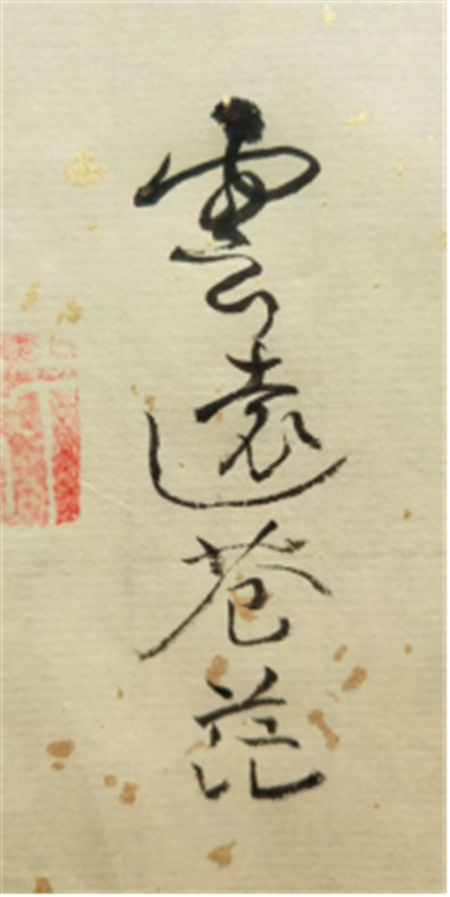 雲遠蒼茫